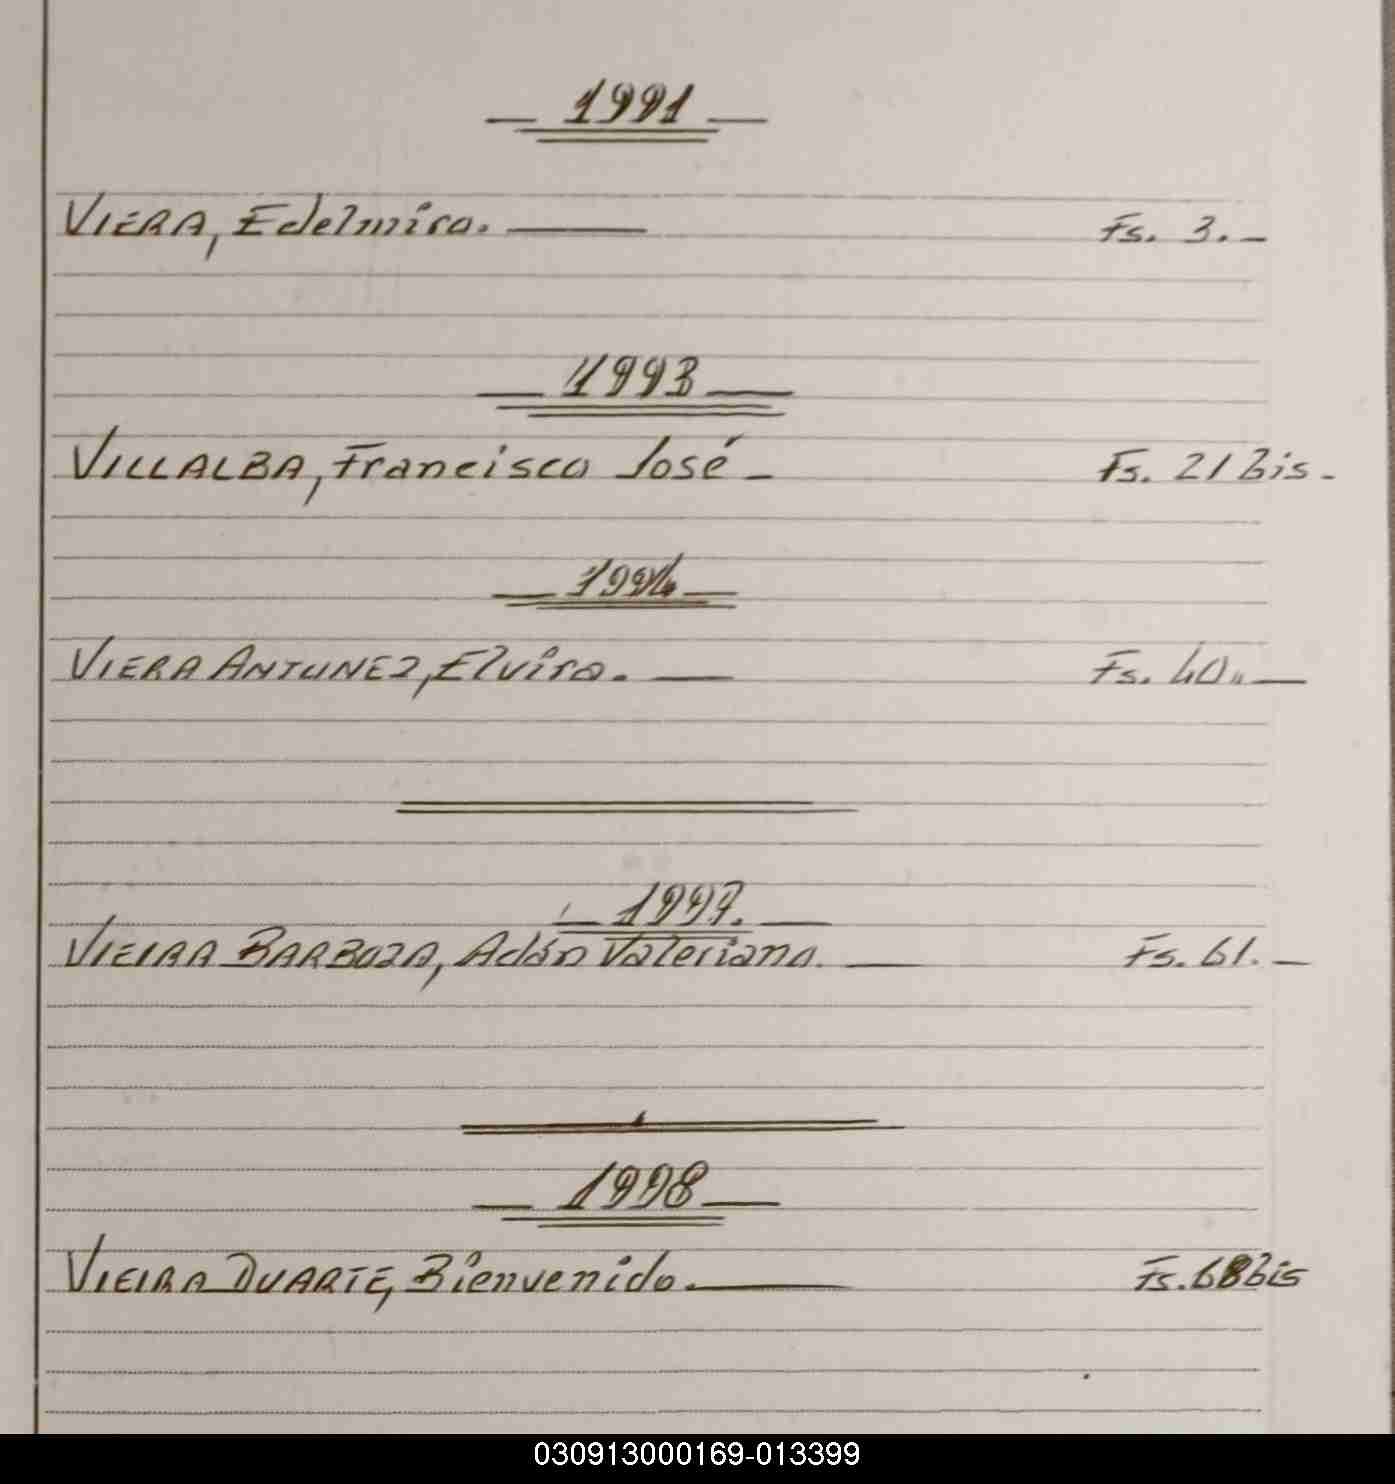 — 1991 —
VIERA, Edelmira. — Fs. 3. —
— 1993 —
VILLALBA, Francisco José — Fs. 21 Bis -
— 1994 —
VIERA ANTUNEZ, Elvira. — Fs. 40. —
— 1997. —
VIEIRA BARBOZA, Adán Valeriano. — Fs. 61. —
— 1998 —
VIEIRA DUARTE, Bienvenido. — Fs. 68 bis
030913000169-013399